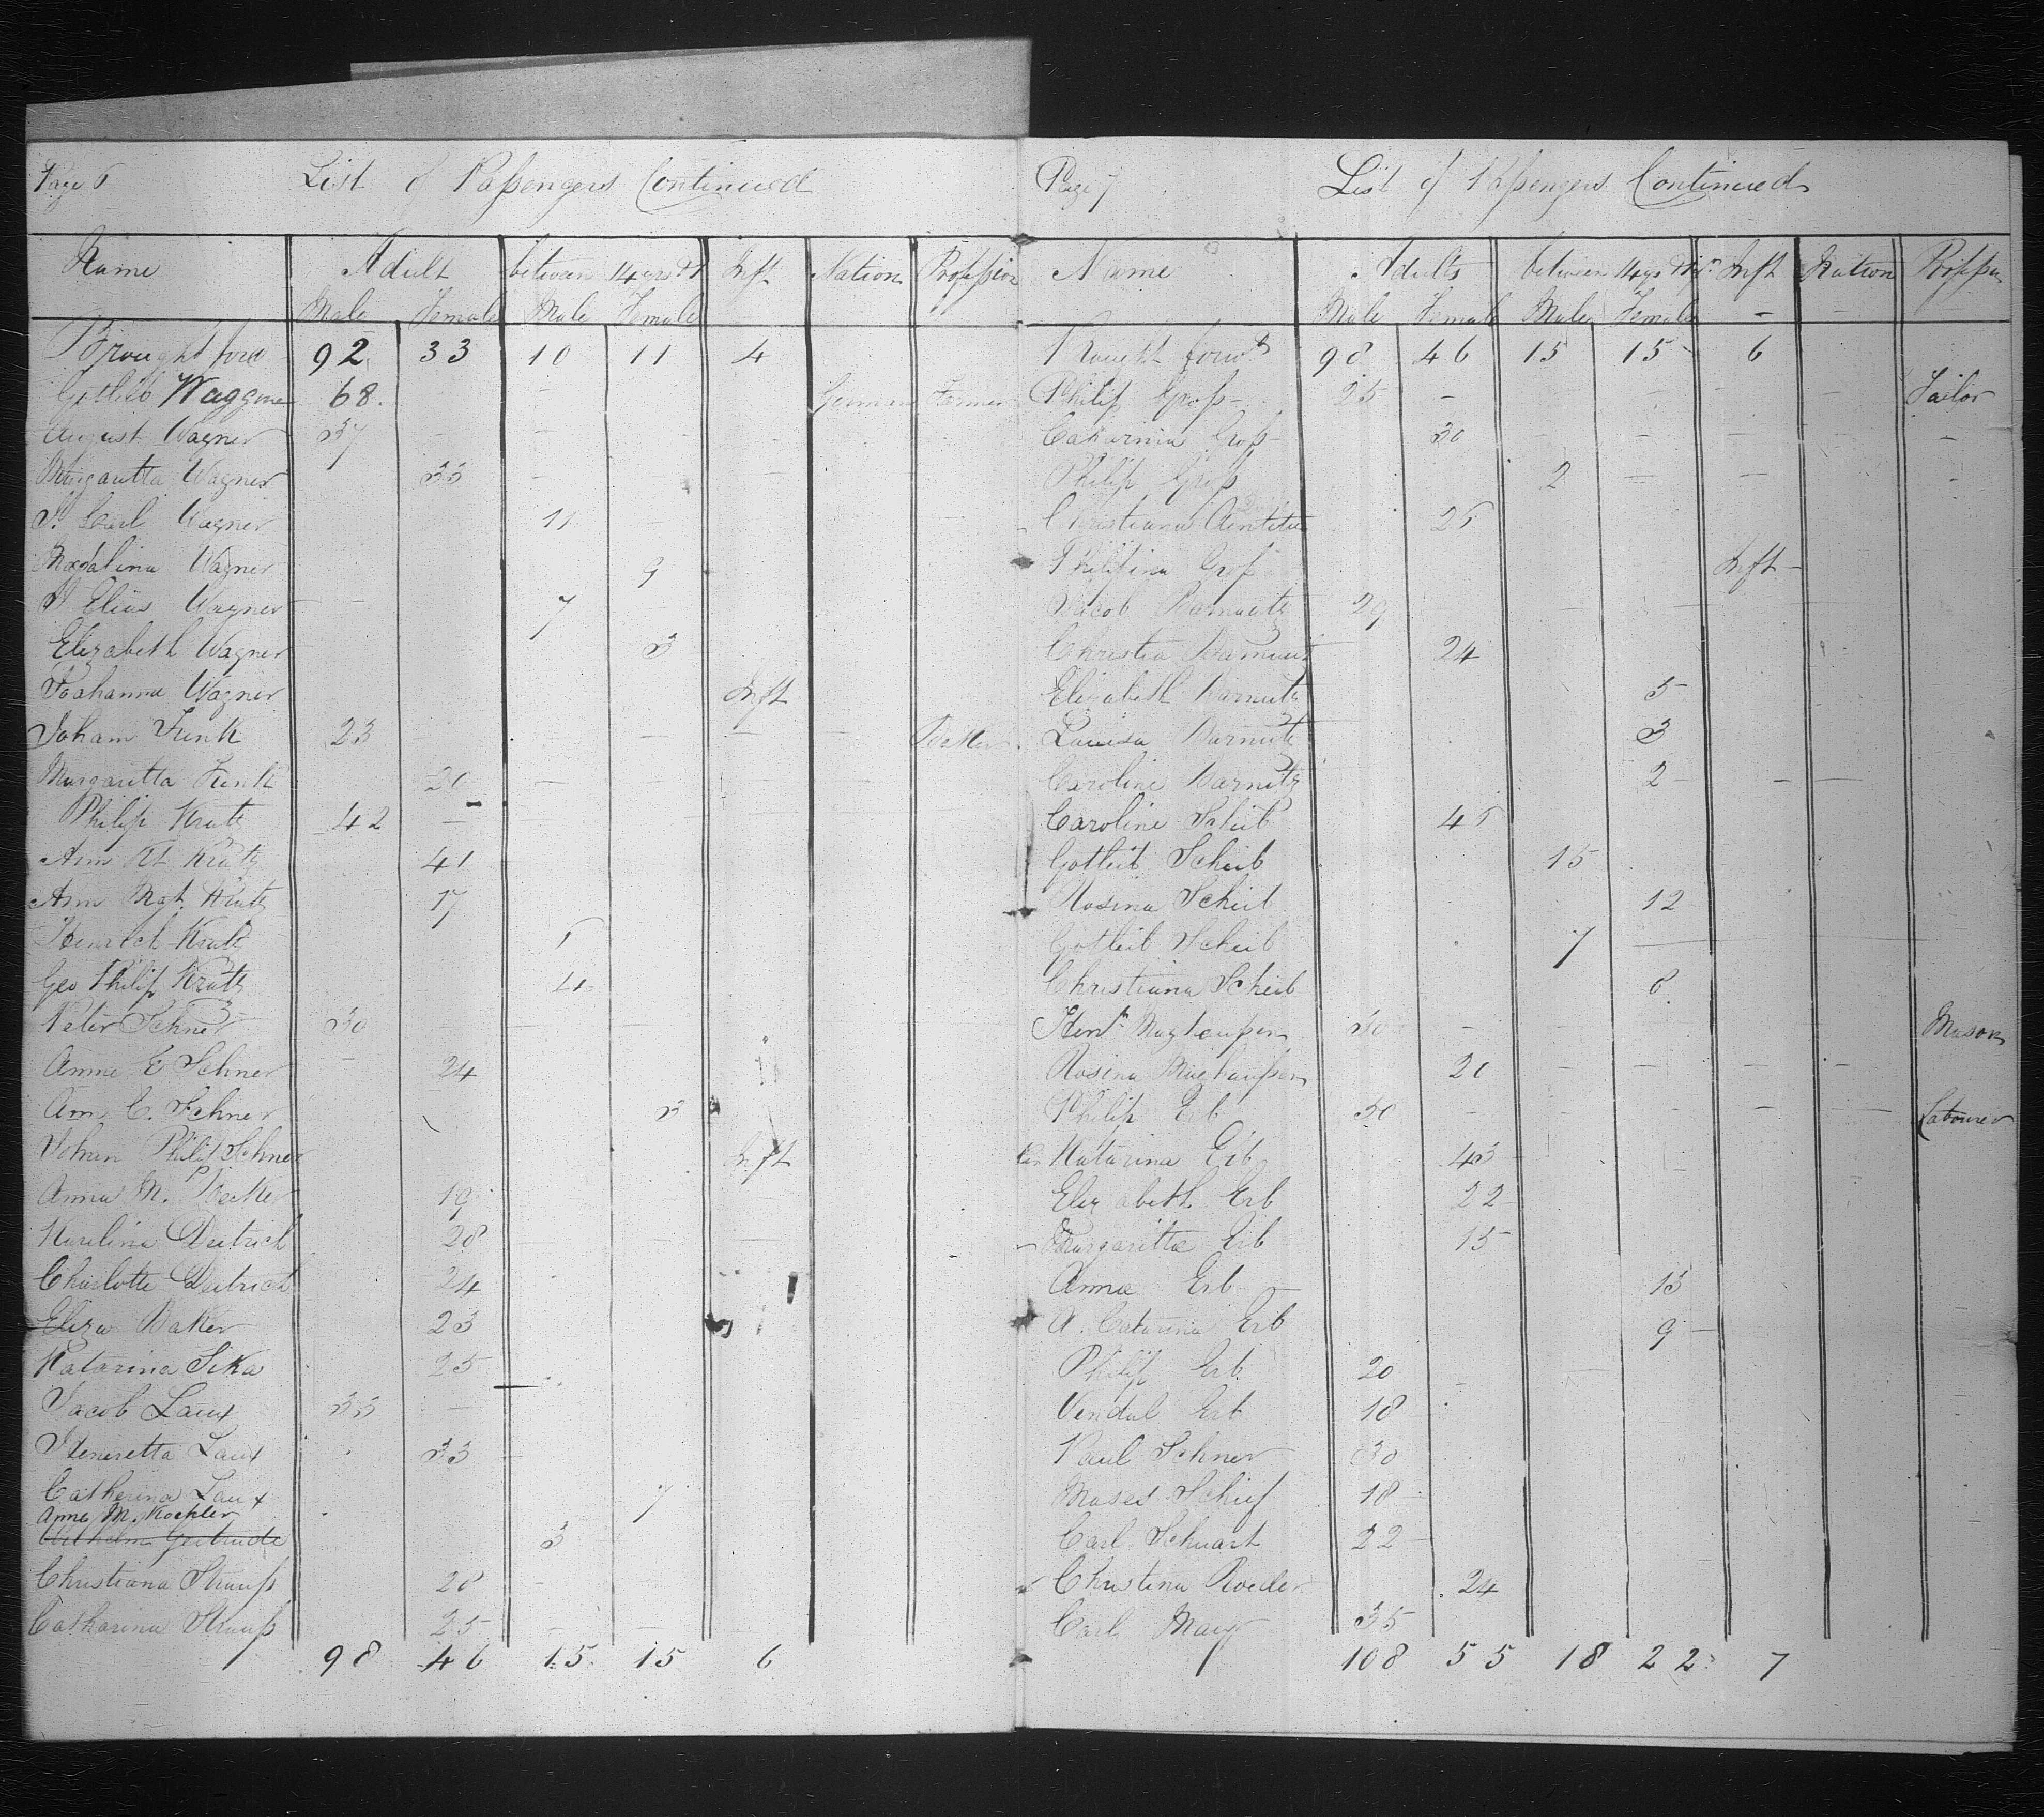 Page 6 List of Passengers Continued
Name Adult between 14 yrs & 1 Inft Nation Profession
Male Female Male Female
Brought forwd 92 33 10 11 4
Gotlieb Waggone 68. German Farmer
August Wagner 37
Margaretta Wagner 33
Carl Wagner 11
Madalina Wagner 9
Elias Wagner 7
Elizabeth Wagner 3
Joahanna Wagner Inft
Joham Funk 23 Baker
Margaretta Funk 20
Philip Kratz 42
Ann Kt Kratz 41
Ann Mag. Kratz 17
Heinrich Kratz
Geo Philip Kratz 4
Peter Schner 30
Anne E Schner 24
Ann C. Schner 3
Johan Philip Schner Inft
Anna M. Becker 19
Karelina Deitrich 28
Charlotte Deitrich 24
Eliza Baker 23
Katarina Sika 25
Jacob Laux 33
Heneretta Laux 33
Catherina Laux 7
Anna M. Koehler
Wilhelm Gertrude 3
Christiana Strauss 28
Catharina Strauss 25
98 46 15 15 6
Page 7 List of Passengers Continued
Name Adults between 14 yrs & 1 yr Inft Nation
Male Female Male Female
Brought forwd 98 46 15 15 6
Philip Gross 25 Tailor
Catarina Gross 30
Philip Gross 2
Christiana 26
Philipina Gross Inft
Jacob Barnutz 29
Christia Barnutz 24
Elizabeth Barnutz 5
Louisa Barnutz 3
Caroline Barnutz 2
Caroline Scheib 45
Gotleib Scheib 15
Rosina Scheib 12
Gotleib Scheib 7
Christiana Scheib 8
Henr 30 Mason
Rosina 20
Philip Erb 50 Labourer
Katarina Erb 43
Elizabeth Erb 22
Margaritta Erb 15
Anna Erb 13
A. Catarina Erb 9
Philip Erb 20
Vendal Erb 18
Paul Schner 30
Moses Schief 18
Carl Schuart 22
Christina Roeder 24
Carl May 35
108 55 18 22 7